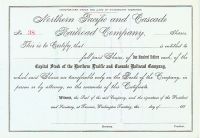 Northern Pacific and Cascade
Railroad Company.
No. 38
Shares
This is to Certify, that is entitled to
full paid Shares, of One Hundred Dollars each, of the
Capital Stock of the Northern Pacific and Cascade Railroad Company,
which said Shares are transferable only on the Books of the Company, in
person or by attorney, on the surrender of this Certificate.
Witness, the Seal of the said Company, and the signatures of the President
and Secretary, at Tacoma, Washington Territory, this day of
Secretary.
President.